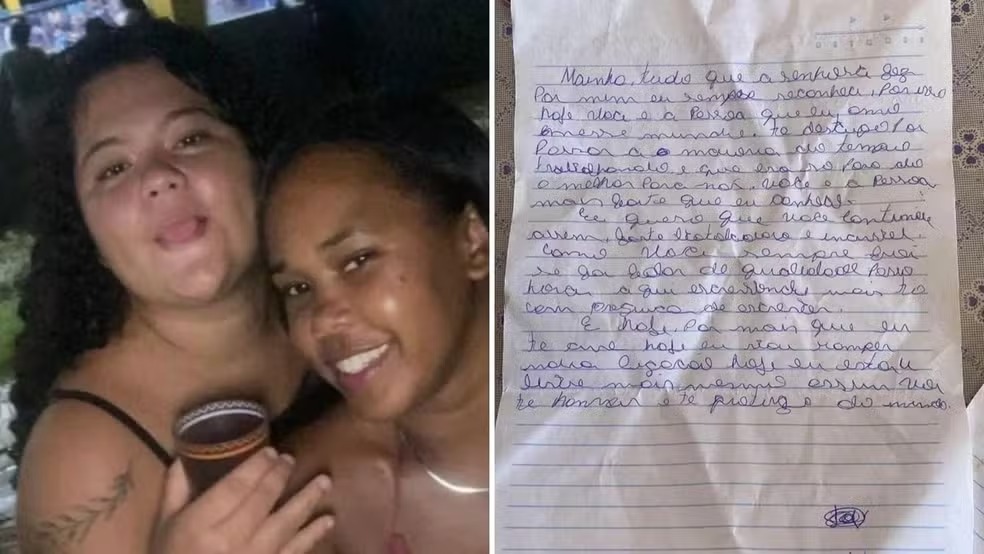 Mainha, tudo que a senhora fez
Por mim eu sempre reconheci, Por isso
hoje Você e a Pessoa que eu amo
nesse mundo. te desculpe Por
Passar a maioria do tempo
trabalhando e que era so Para da
o melhor Para nos. Você e a Pessoa
mais forte que eu conheci.
Eu quero que Você continue
assim, forte trabalhadora e incrivel.
Como Você sempre foi
de qualidade Para
hora a que escrevendo mais to
com preguiça de escrever.
E hoje, Por mais que eu
te ame hoje eu vou romper
hoje eu estou
livre mais mesmo assim vou
te honrar e te protezo do mundo.